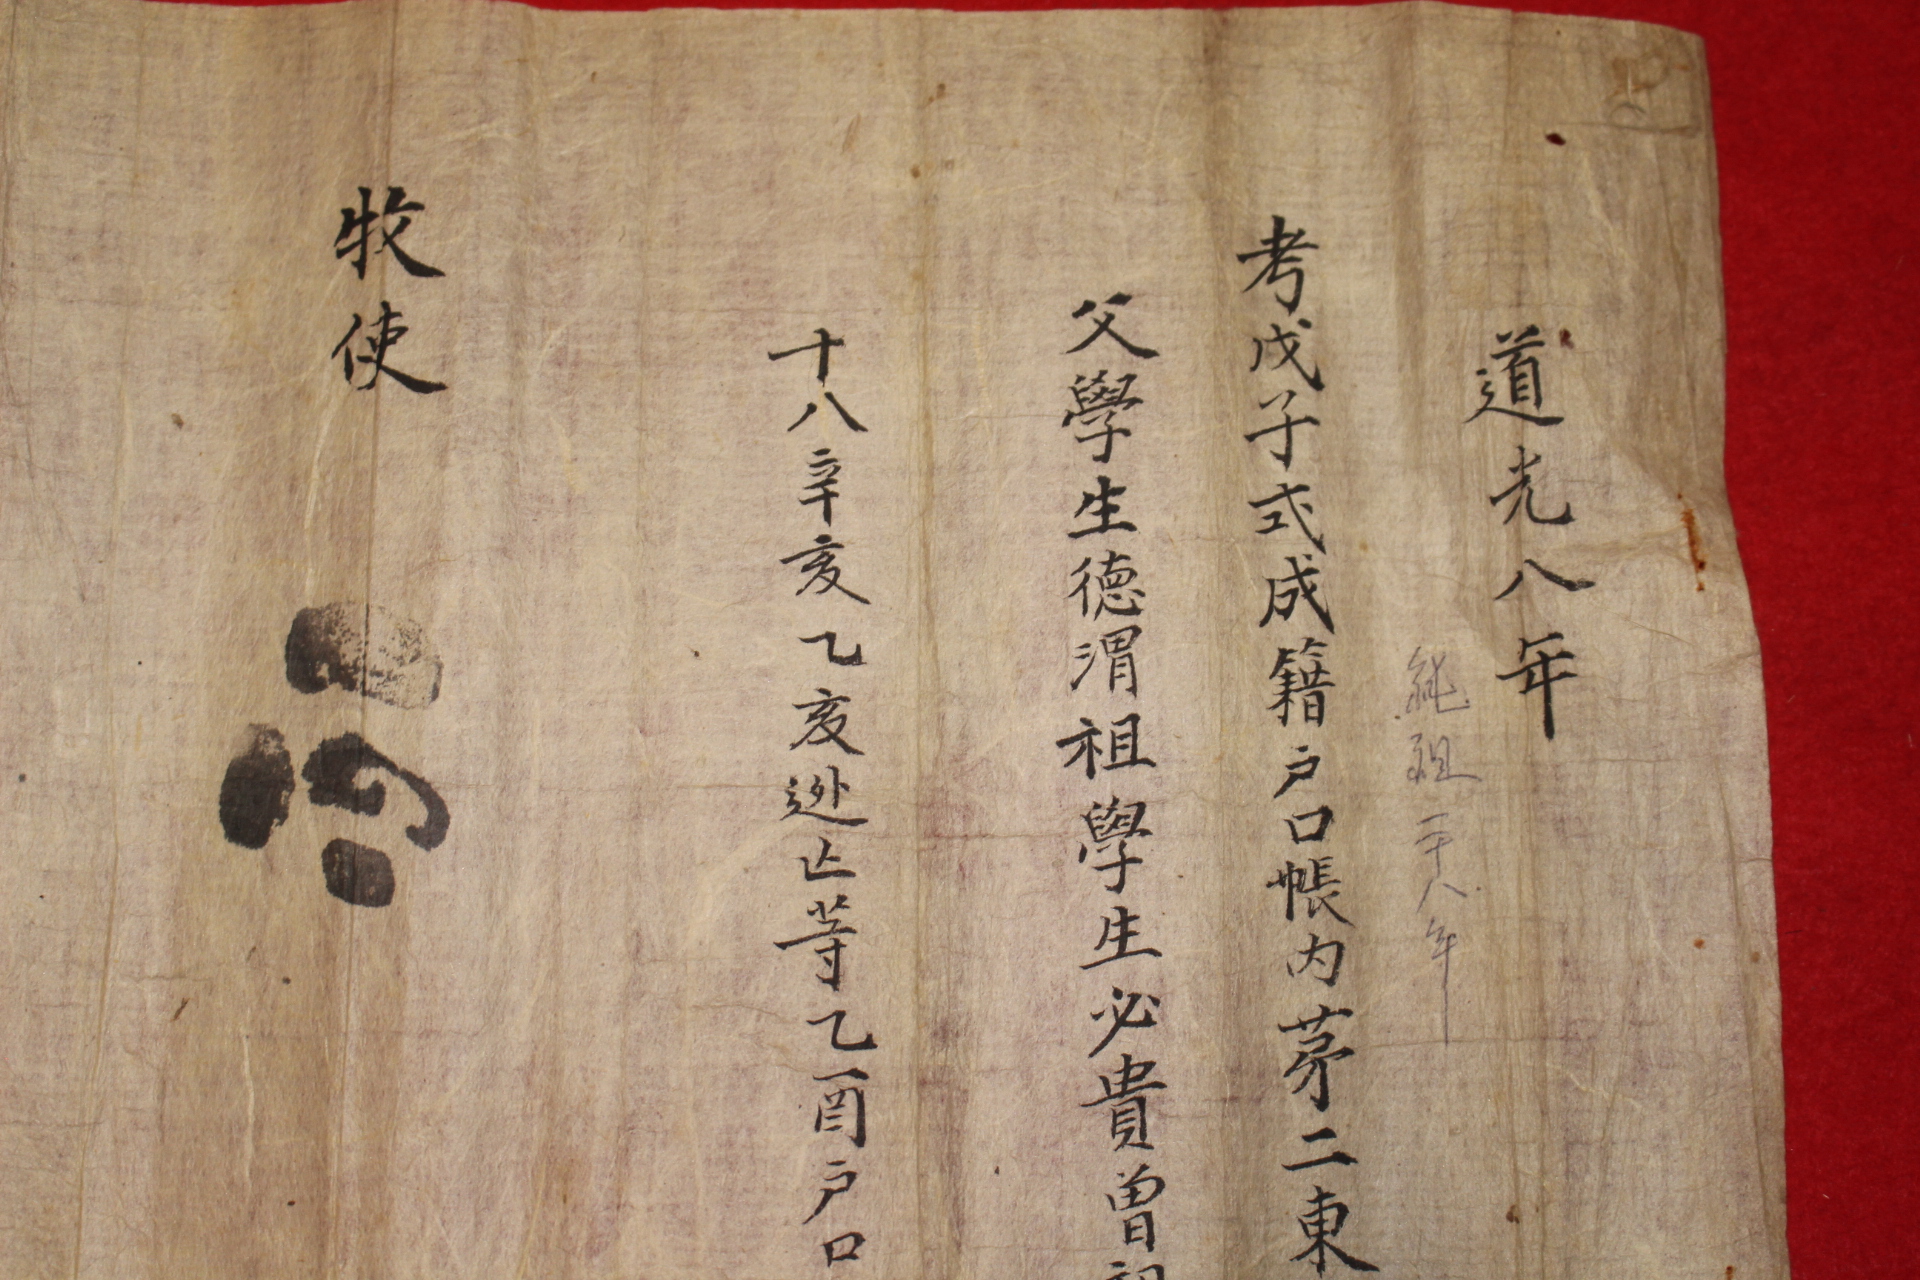 道光八年
純祖二十八年
考戊子式成籍戶口帳內茅二東
父學生德渭祖學生必貴曾祖
十八辛亥乙亥逃亡等乙酉戶口
牧使